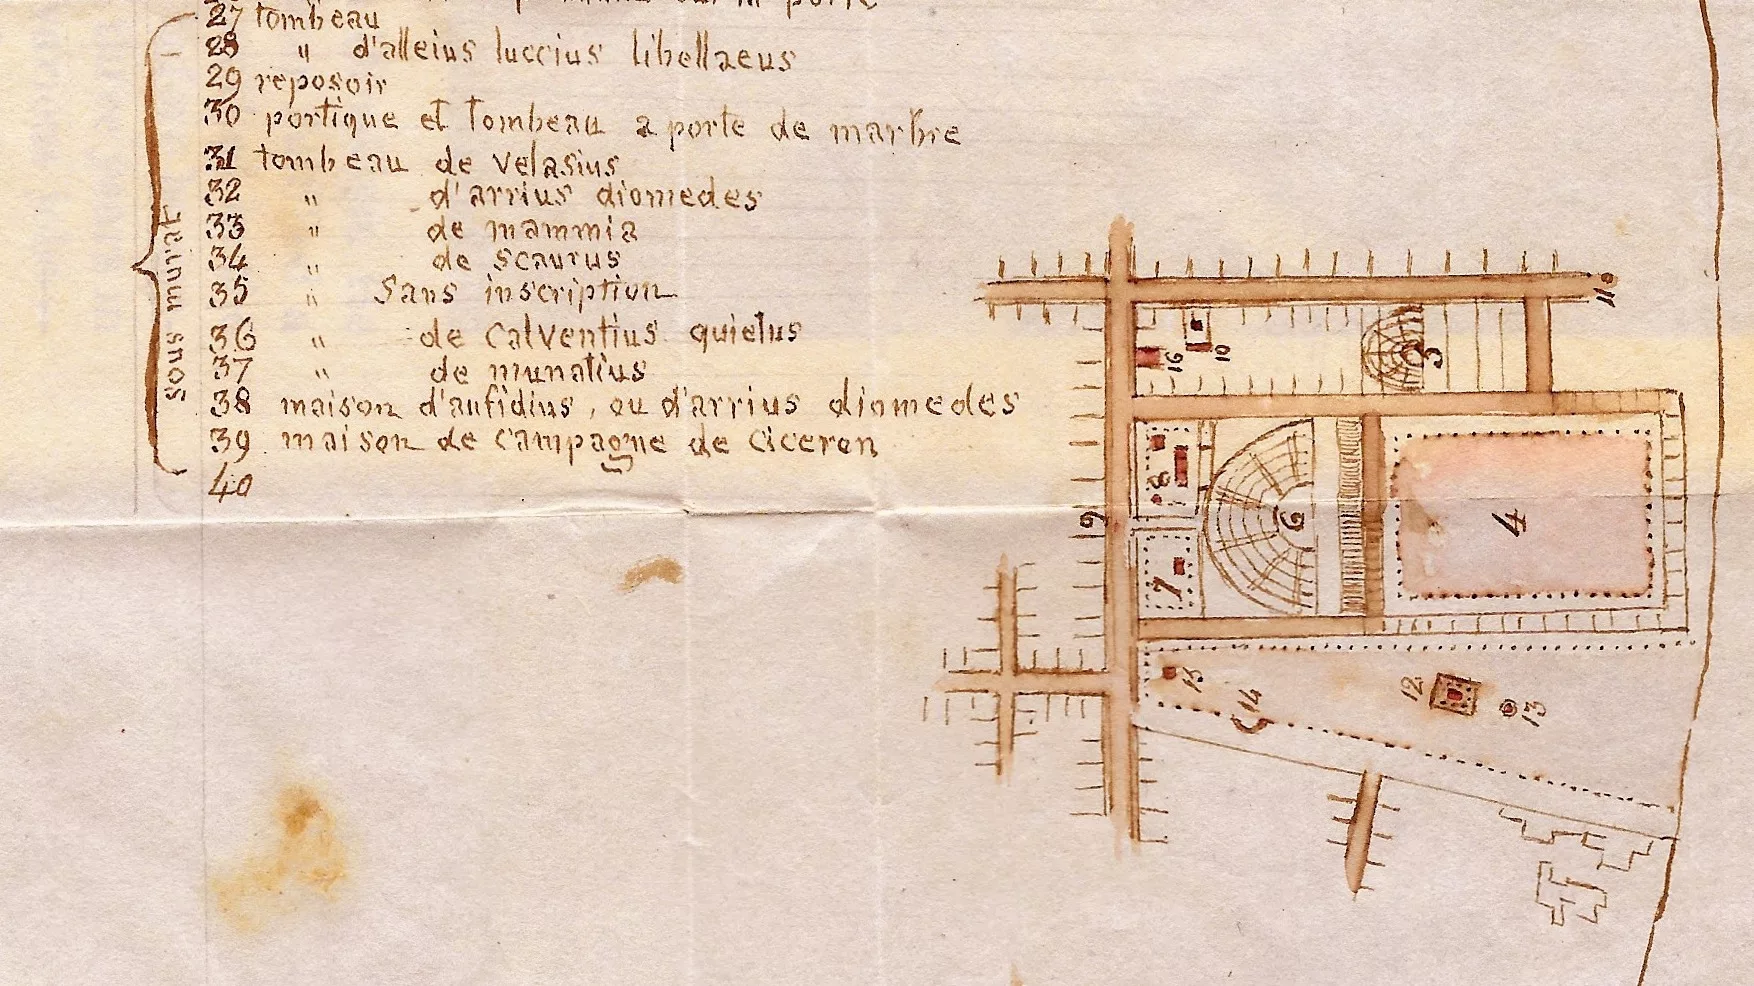 27 tombeau
28 " d'alleius luccius libellaeus
29 reposoir
30 portique et tombeau a porte de marbre
31 tombeau de velasius
32 " d'arrius diomedes
33 " de mammia
34 " de scaurus
35 " Sans inscription
36 " de Calventius quietus
37 " de munatius
38 maison d'aufidius, ou d'arrius diomedes
39 maison de campagne de Ciceron
40
sous murat
11
16
10
5
8
9
6
4
7
13
14
12
13